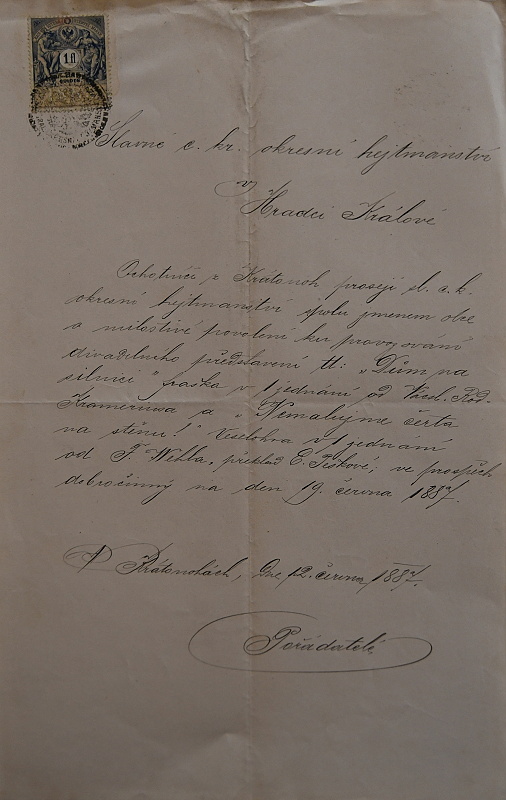 1 fl
Slavné c. kr. okresní hejtmanství
v
Hradci Králové
Ochotníci z Krátonoh prosejí sl. c. k.
okresní hejtmanství spolu jmenem obce
o milostivé povolení ku provozování
divadelního představení tl: „Dům na
silnici" fraška v 1 jednání od Vácsl. Rod.
Krameriusa a „Nemalujme čerta
na stěnu!" Veselohra v 1 jednání
od F. Wehla, překlad E. Peškové; ve prospěch
dobročinný na den 19. června 1887.
V Krátonohách, dne 12. června 1887.
Pořádatelé